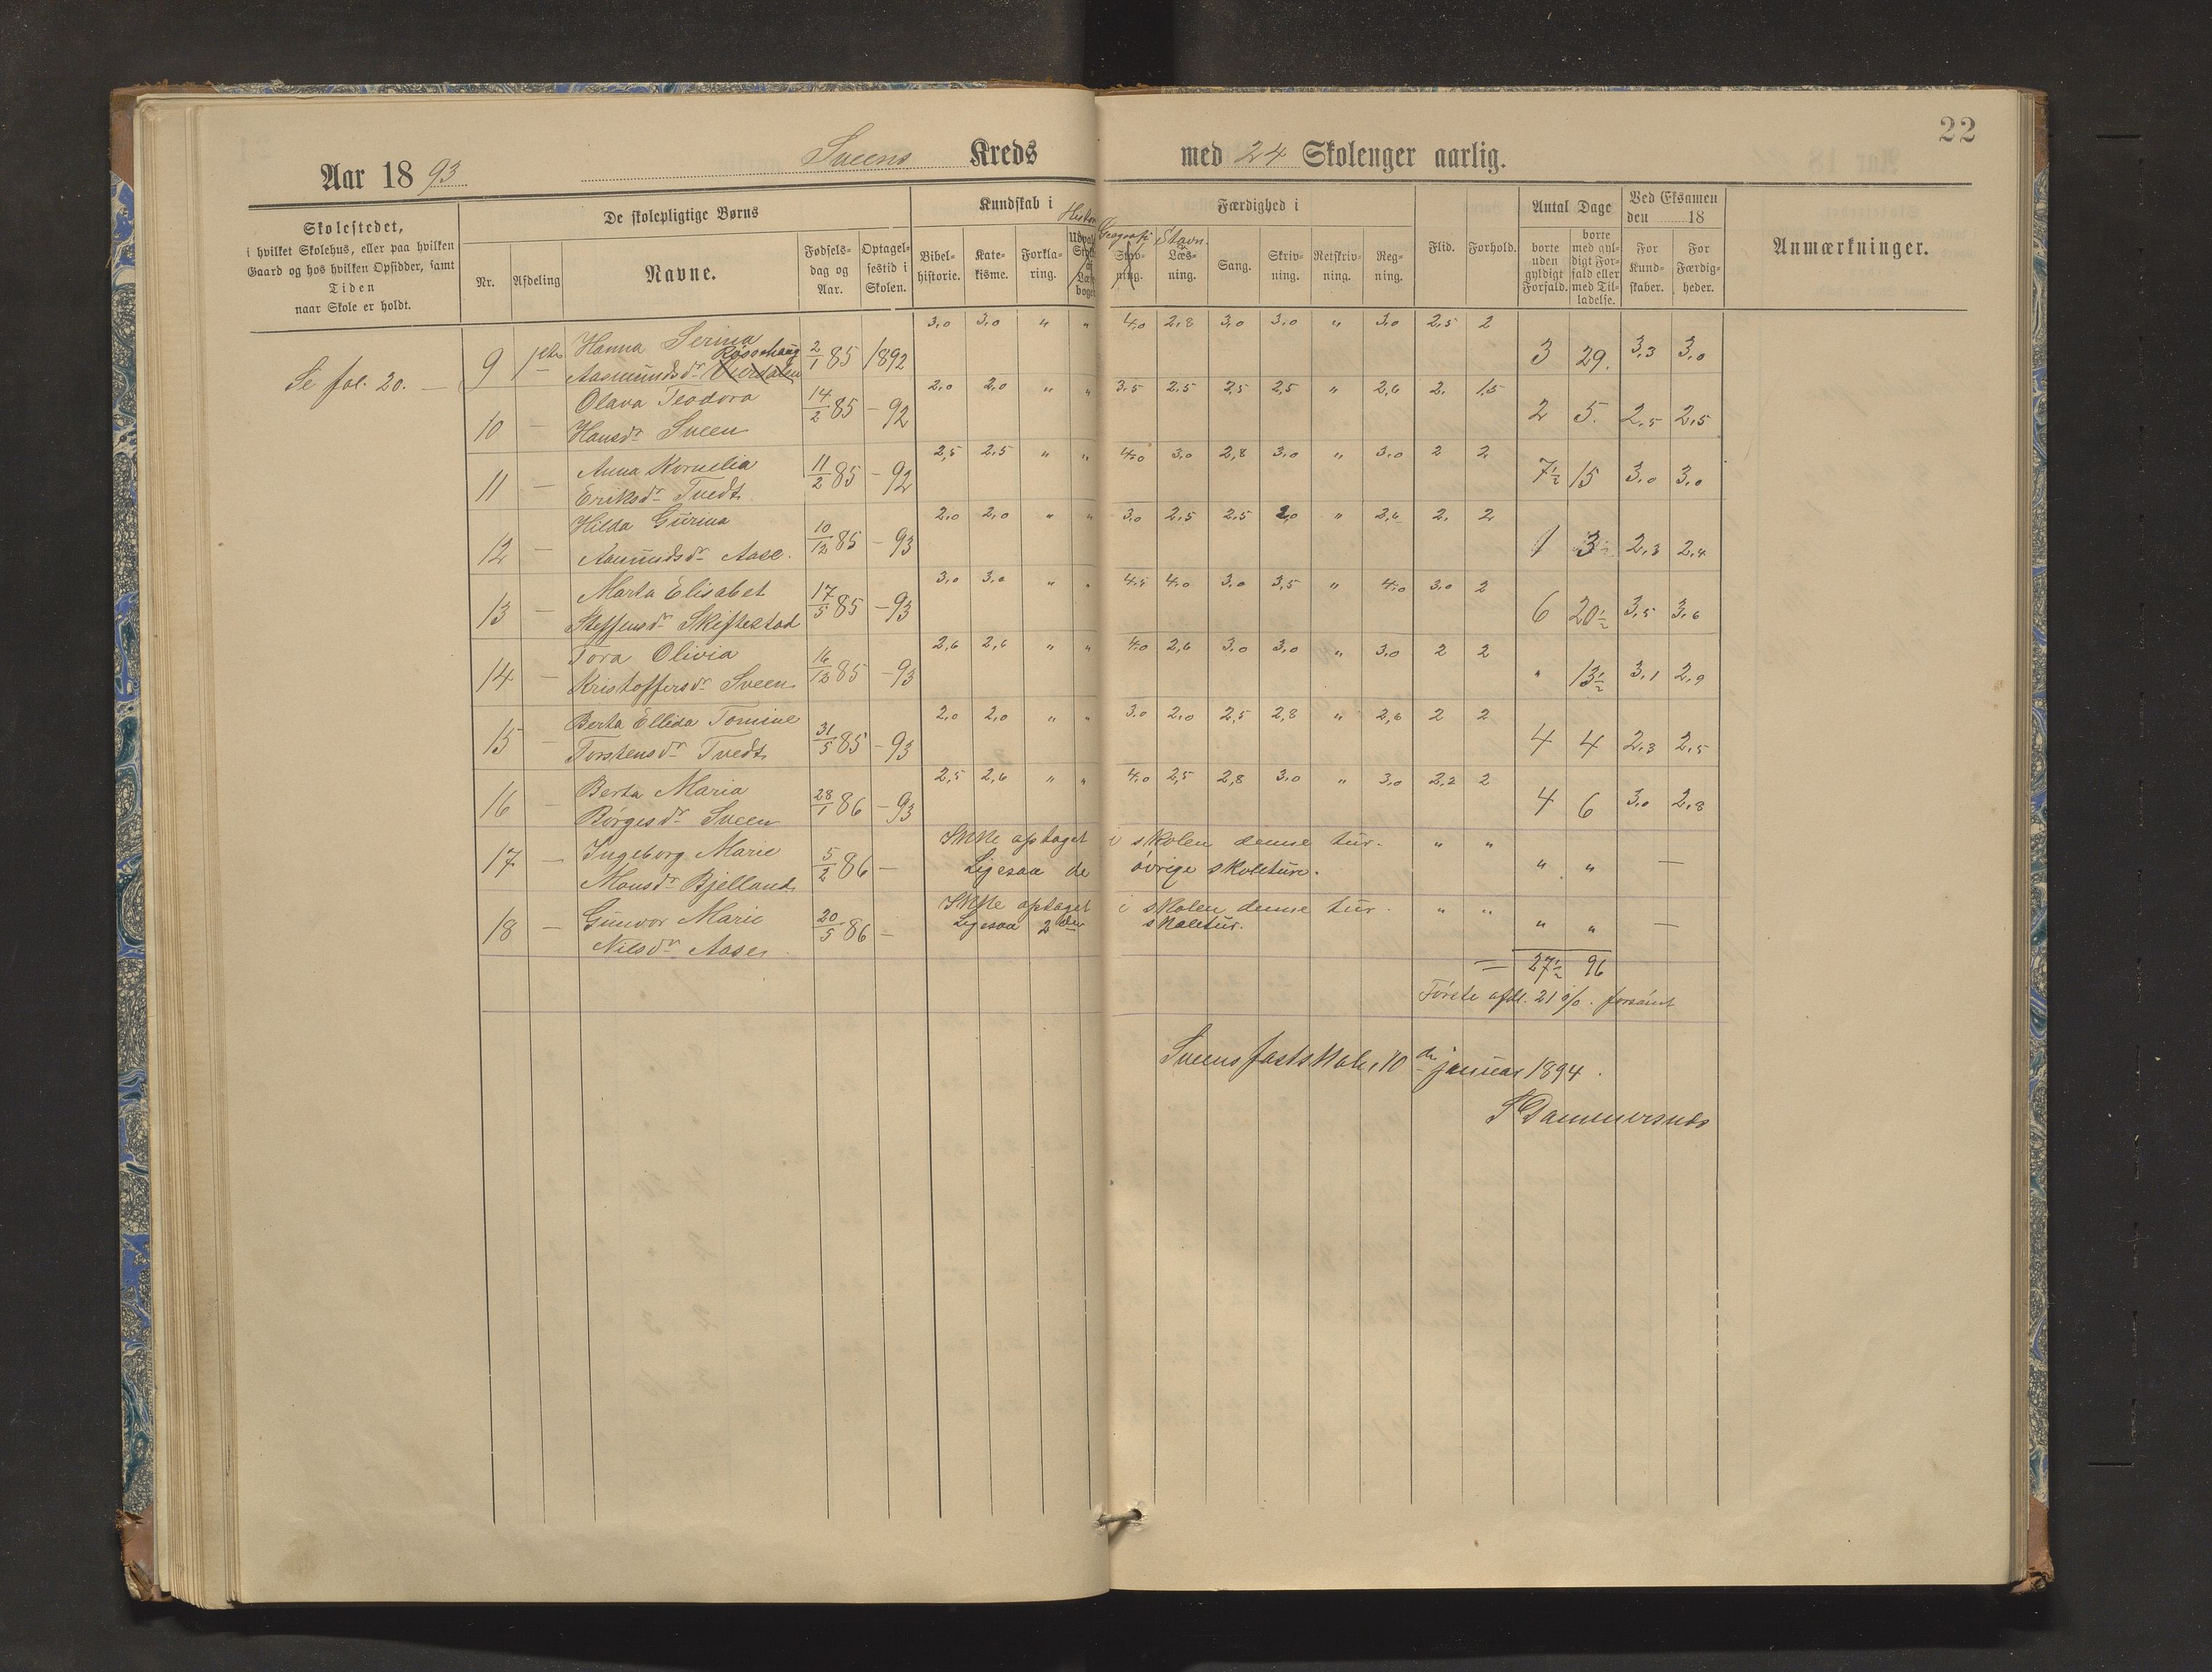 22
Aar 1893 Sveens Kreds med 24 Skoleuger aarlig.
Skolestedet,
i hvilket Skolehus, eller paa hvilken
Gaard og hos hvilken Opsidder, samt
Tiden
naar Skole er holdt.
De skolepligtige Børns
Nr. Afdeling Navne. Fødsels-dag og Aar. Optagel-sestid i Skolen.
Kundskab i
Bibel-historie. Kate-kisme. Forkla-ring.
Færdighed i
Geografi Stavn. Læs-ning. Sang. Skriv-ning. Retskriv-ning. Reg-ning.
Flid. Forhold.
Antal Dage
borte uden gyldigt Forfald. borte med gyl-digt For-fald eller med Til-ladelse.
Ved Eksamen den 18
For Kund-skaber. For Færdig-heder.
Anmærkninger.
Se fol. 20.
3,0 3,0 " " 4,0 2,8 3,0 3,0 " 3,0 2,5 2
9 1ste Hanna Serina 2/1 85 1892 3 29. 3,3 3,0
Røsshaug
Aasmundsdr
2,0 2,0 " " 3,5 2,5 2,5 2,5 " 2,6 2. 1,5
Olava Teodora 14/2 85 - 92 2 5. 2,5 2,5
10 - Hansdr Sveen
2,5 2,5 " " 4,0 3,0 2,8 3,0 " 3,0 2 2
Anna Kornelia 11/2 85 - 92 7½ 15 3,0 3,0
11 - Eriksdr Tvedt
2,0 2,0 " " 3,0 2,5 2,5 2,0 " 2,6 2. 2
Hilda Gurina 10/12 85 - 93 1 3½ 2,3 2,4
12 - Aamundsdr Aase.
3,0 3,0 " " 4,5 4,0 3,0 3,5 " 4,0 3,0 2
Marta Elisabet 17/5 85 - 93 6 20½ 3,5 3,6
13 - Steffensdr Skiftestad
2,6 2,6 " " 4,0 2,6 3,0 3,0 " 3,0 2 2
Tora Olivia 16/12 85 - 93 " 13½ 3,1 2,9
14 - Kristoffersdr Sveen
2,0 2,0 " " 3,0 2,0 2,5 2,8 " 2,6 2 2
Berta Ellida Tomine 31/5 85 - 93 4 4 2,3 2,5
15 - Torstensdr Tvedt
2,5 2,6 " " 4,0 2,5 2,8 3,0 " 3,0 2,2 2
Berta Maria 28/1 86 - 93 4 6 3,0 2,8
16 - Børgesdr Sveen
Ikke optaget i skolen denne tur. " "
17 - Ingeborg Marie 5/2 86 - Ligesaa de øvrige skoleture. " " —
Monsdr Bjelland
Ikke optaget i skolen denne tur. " "
18 - Gunvor Marie 20/5 86 - Ligesaa 2den skoletur. " " —
Nilsdr Aase
= 27½ 96
Første afdl. 21 %. forsømt
Sveens fastskole, 10de januar 1894.